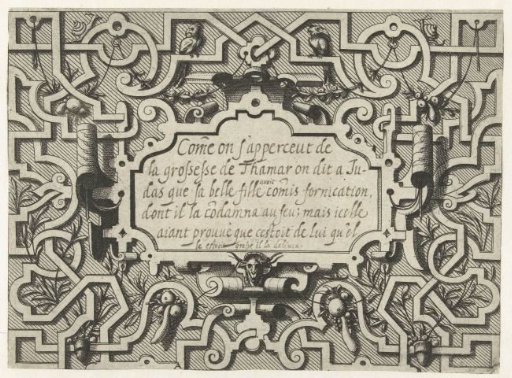 Come on s'apperceut de
la grossesse de Thamar on dit a Ju-
das que sa belle fille avoit comis fornication,
dont il la codamna au feu: mais icelle
aiant prouue que cestoit de lui qu'el
le estoit il la deliura